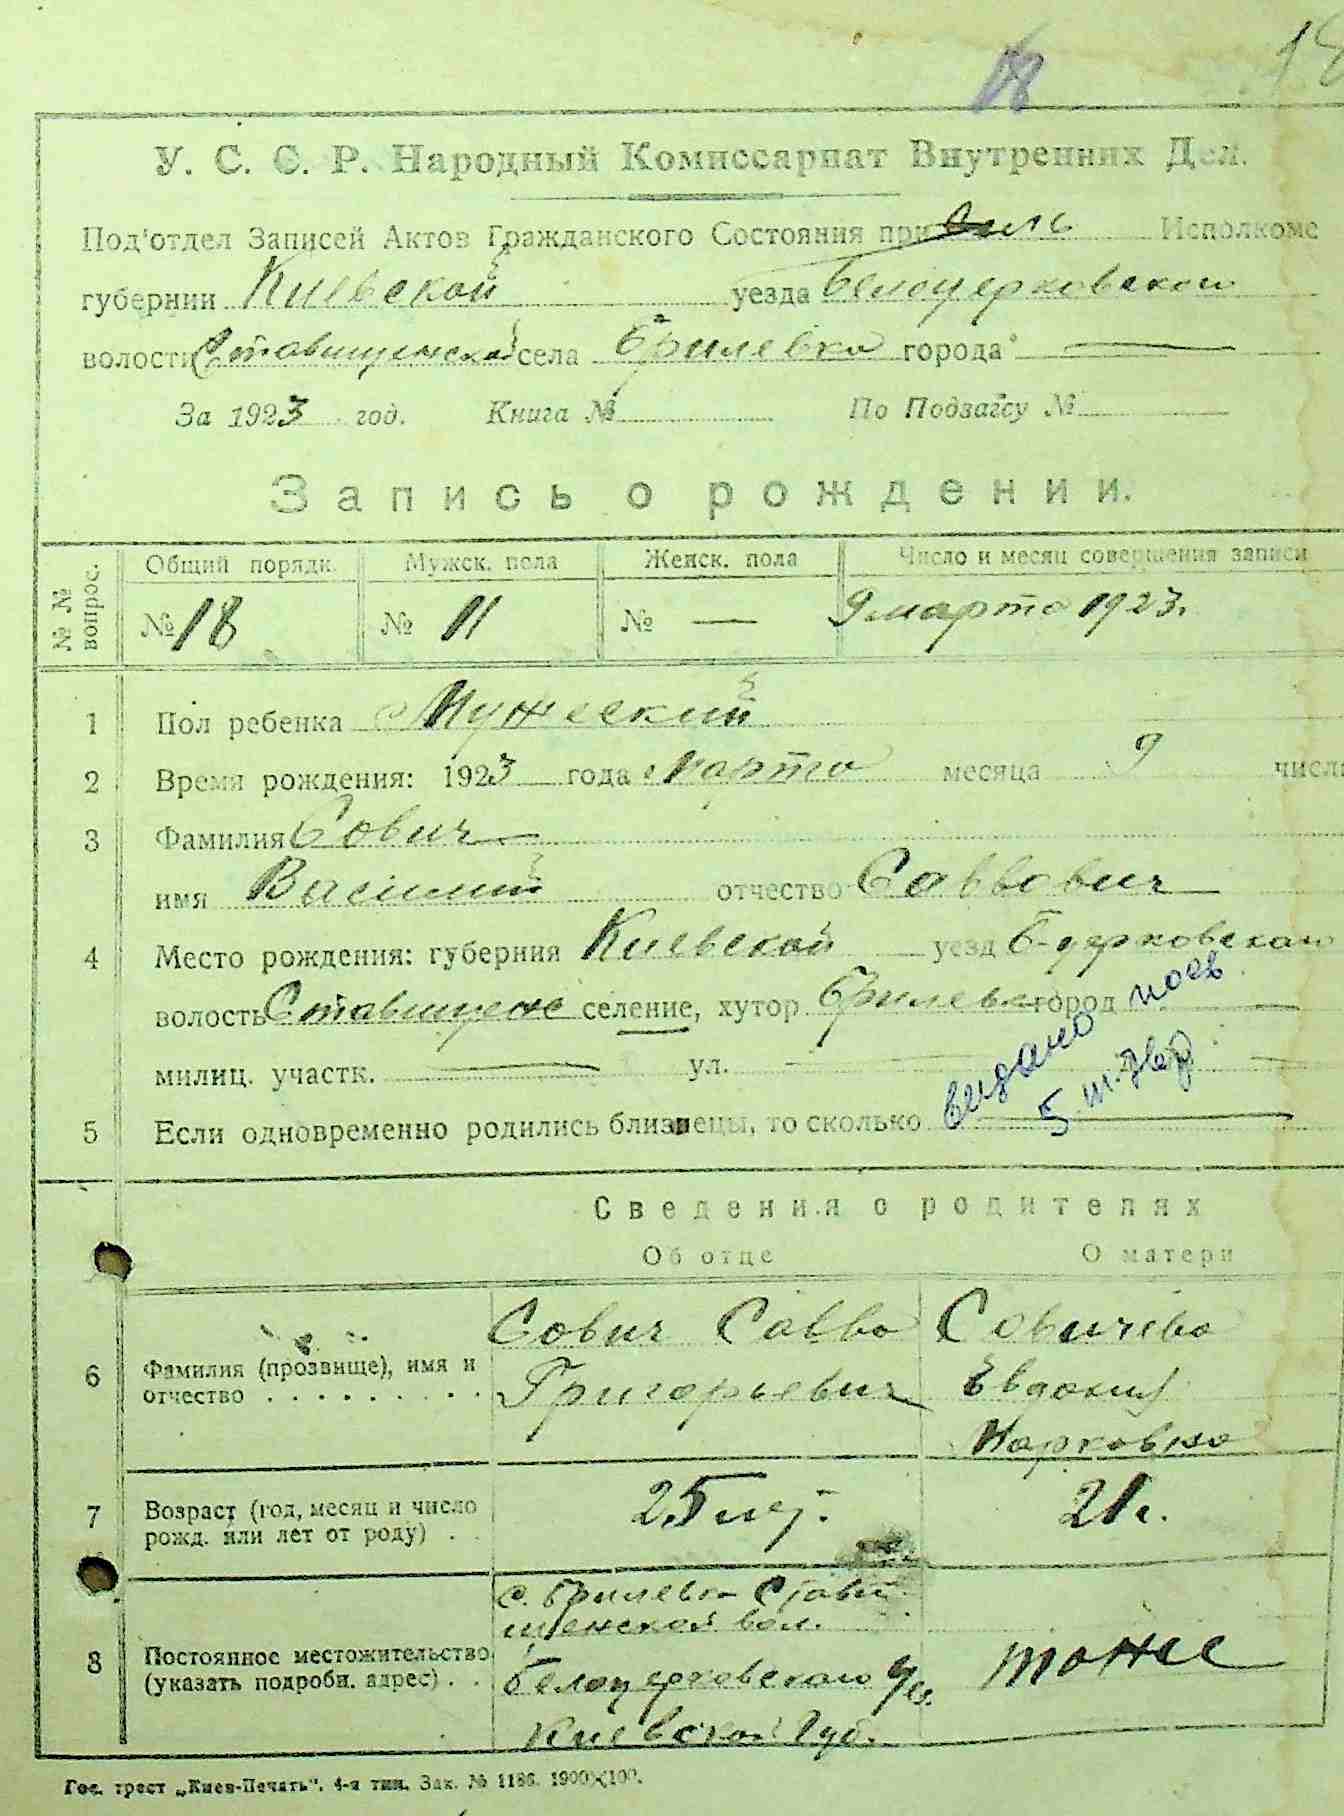 18 18
У. С. С. Р. Народный Комиссариат Внутренних Дел.
Под'отдел Записей Актов Гражданского Состояния при Исполкоме
губернии Киевской уезда Белоцерковского
волости Ставищенской села Брилевка города —
За 1923 год. Книга № По Подзагсу №
Запись о рождении.
№ № вопрос. Общий порядк. Мужск. пола Женск. пола Число и месяц совершения записи
№ 18 № 11 № — 9 марта 1923.
1 Пол ребенка Мужеский
2 Время рождения: 1923 года марта месяца 9 числа
3 Фамилия Сович
имя Василий отчество Саввович
4 Место рождения: губерния Киевской уезд Б-церковского
волость Ставищенс селение, хутор Брилевка город —
милиц. участк. — ул. —
видано
5
5 Если одновременно родились близнецы, то сколько —
Сведения о родителях
Об отце О матери
6 Фамилия (прозвище), имя и
отчество . . . . . . . . .
Сович Савва
Григорьевич
Совичева
Евдокия
Марковна
7 Возраст (год, месяц и число
рожд. или лет от роду) . .
25 лет. 21 г.
8 Постоянное местожительство
(указать подробн. адрес) . .
с. Брилевка Стави-
щенской вол.
Белоцерковского у.
Киевской Губ.
тоже
Гос. трест „Киев-Печать", 4-я тип. Зак. № 1186. 1900×100.